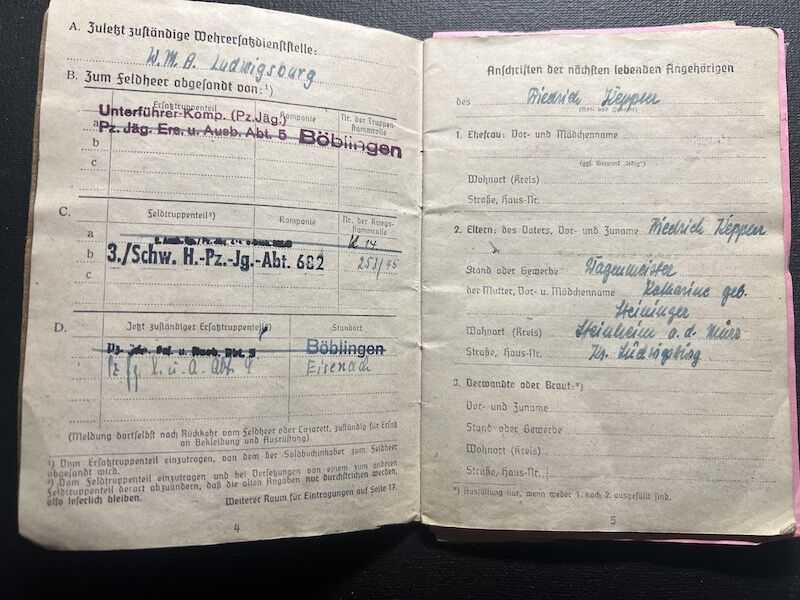 A. Zuletzt zuständige Wehrersatzdienststelle:
W.M.A. Ludwigsburg
B. Zum Feldheer abgesandt von:¹)
Ersatztruppenteil Kompanie Nr. der Truppenstammrolle
a Unterführer-Komp. (Pz.Jäg.)
Pz. Jäg. Ers. u. Ausb. Abt. 5 Böblingen
b
c
C. Feldtruppenteil²) Kompanie Nr. der Kriegsstammrolle
a K 14
b 3./Schw. H.-Pz.-Jg.-Abt. 682 253/45
c
D. Jetzt zuständiger Ersatztruppenteil²) Standort
Böblingen
Pz. Jg. E. u. A. Abt. 9 Eisenach
(Meldung dortselbst nach Rückkehr vom Feldheer oder Lazarett, zuständig für Ersatz
an Bekleidung und Ausrüstung)
¹) Vom Ersatztruppenteil einzutragen, von dem der Soldbuchinhaber zum Feldheer
abgesandt wird.
²) Vom Feldtruppenteil einzutragen und bei Versetzungen von einem zum anderen
Feldtruppenteil derart abzuändern, daß die alten Angaben nur durchstrichen werden,
also leserlich bleiben. Weiterer Raum für Eintragungen auf Seite 17.
4
Anschriften der nächsten lebenden Angehörigen
des Friedrich
(Vor- und Zuname)
1. Ehefrau: Vor- und Mädchenname
(ggf. Vermerk „ledig“)
Wohnort (Kreis)
Straße, Haus-Nr.
2. Eltern: des Vaters, Vor- und Zuname Friedrich
Stand oder Gewerbe Wagenmeister
der Mutter, Vor- u. Mädchenname Katharine geb.
Steininger
Wohnort (Kreis) Steinheim a. d. Murr
Straße, Haus-Nr. Kr. Ludwigsburg
3. Verwandte oder Braut:*)
Vor- und Zuname
Stand oder Gewerbe
Wohnort (Kreis)
Straße, Haus-Nr.
*) Ausfüllung nur, wenn weder 1. noch 2. ausgefüllt sind.
5